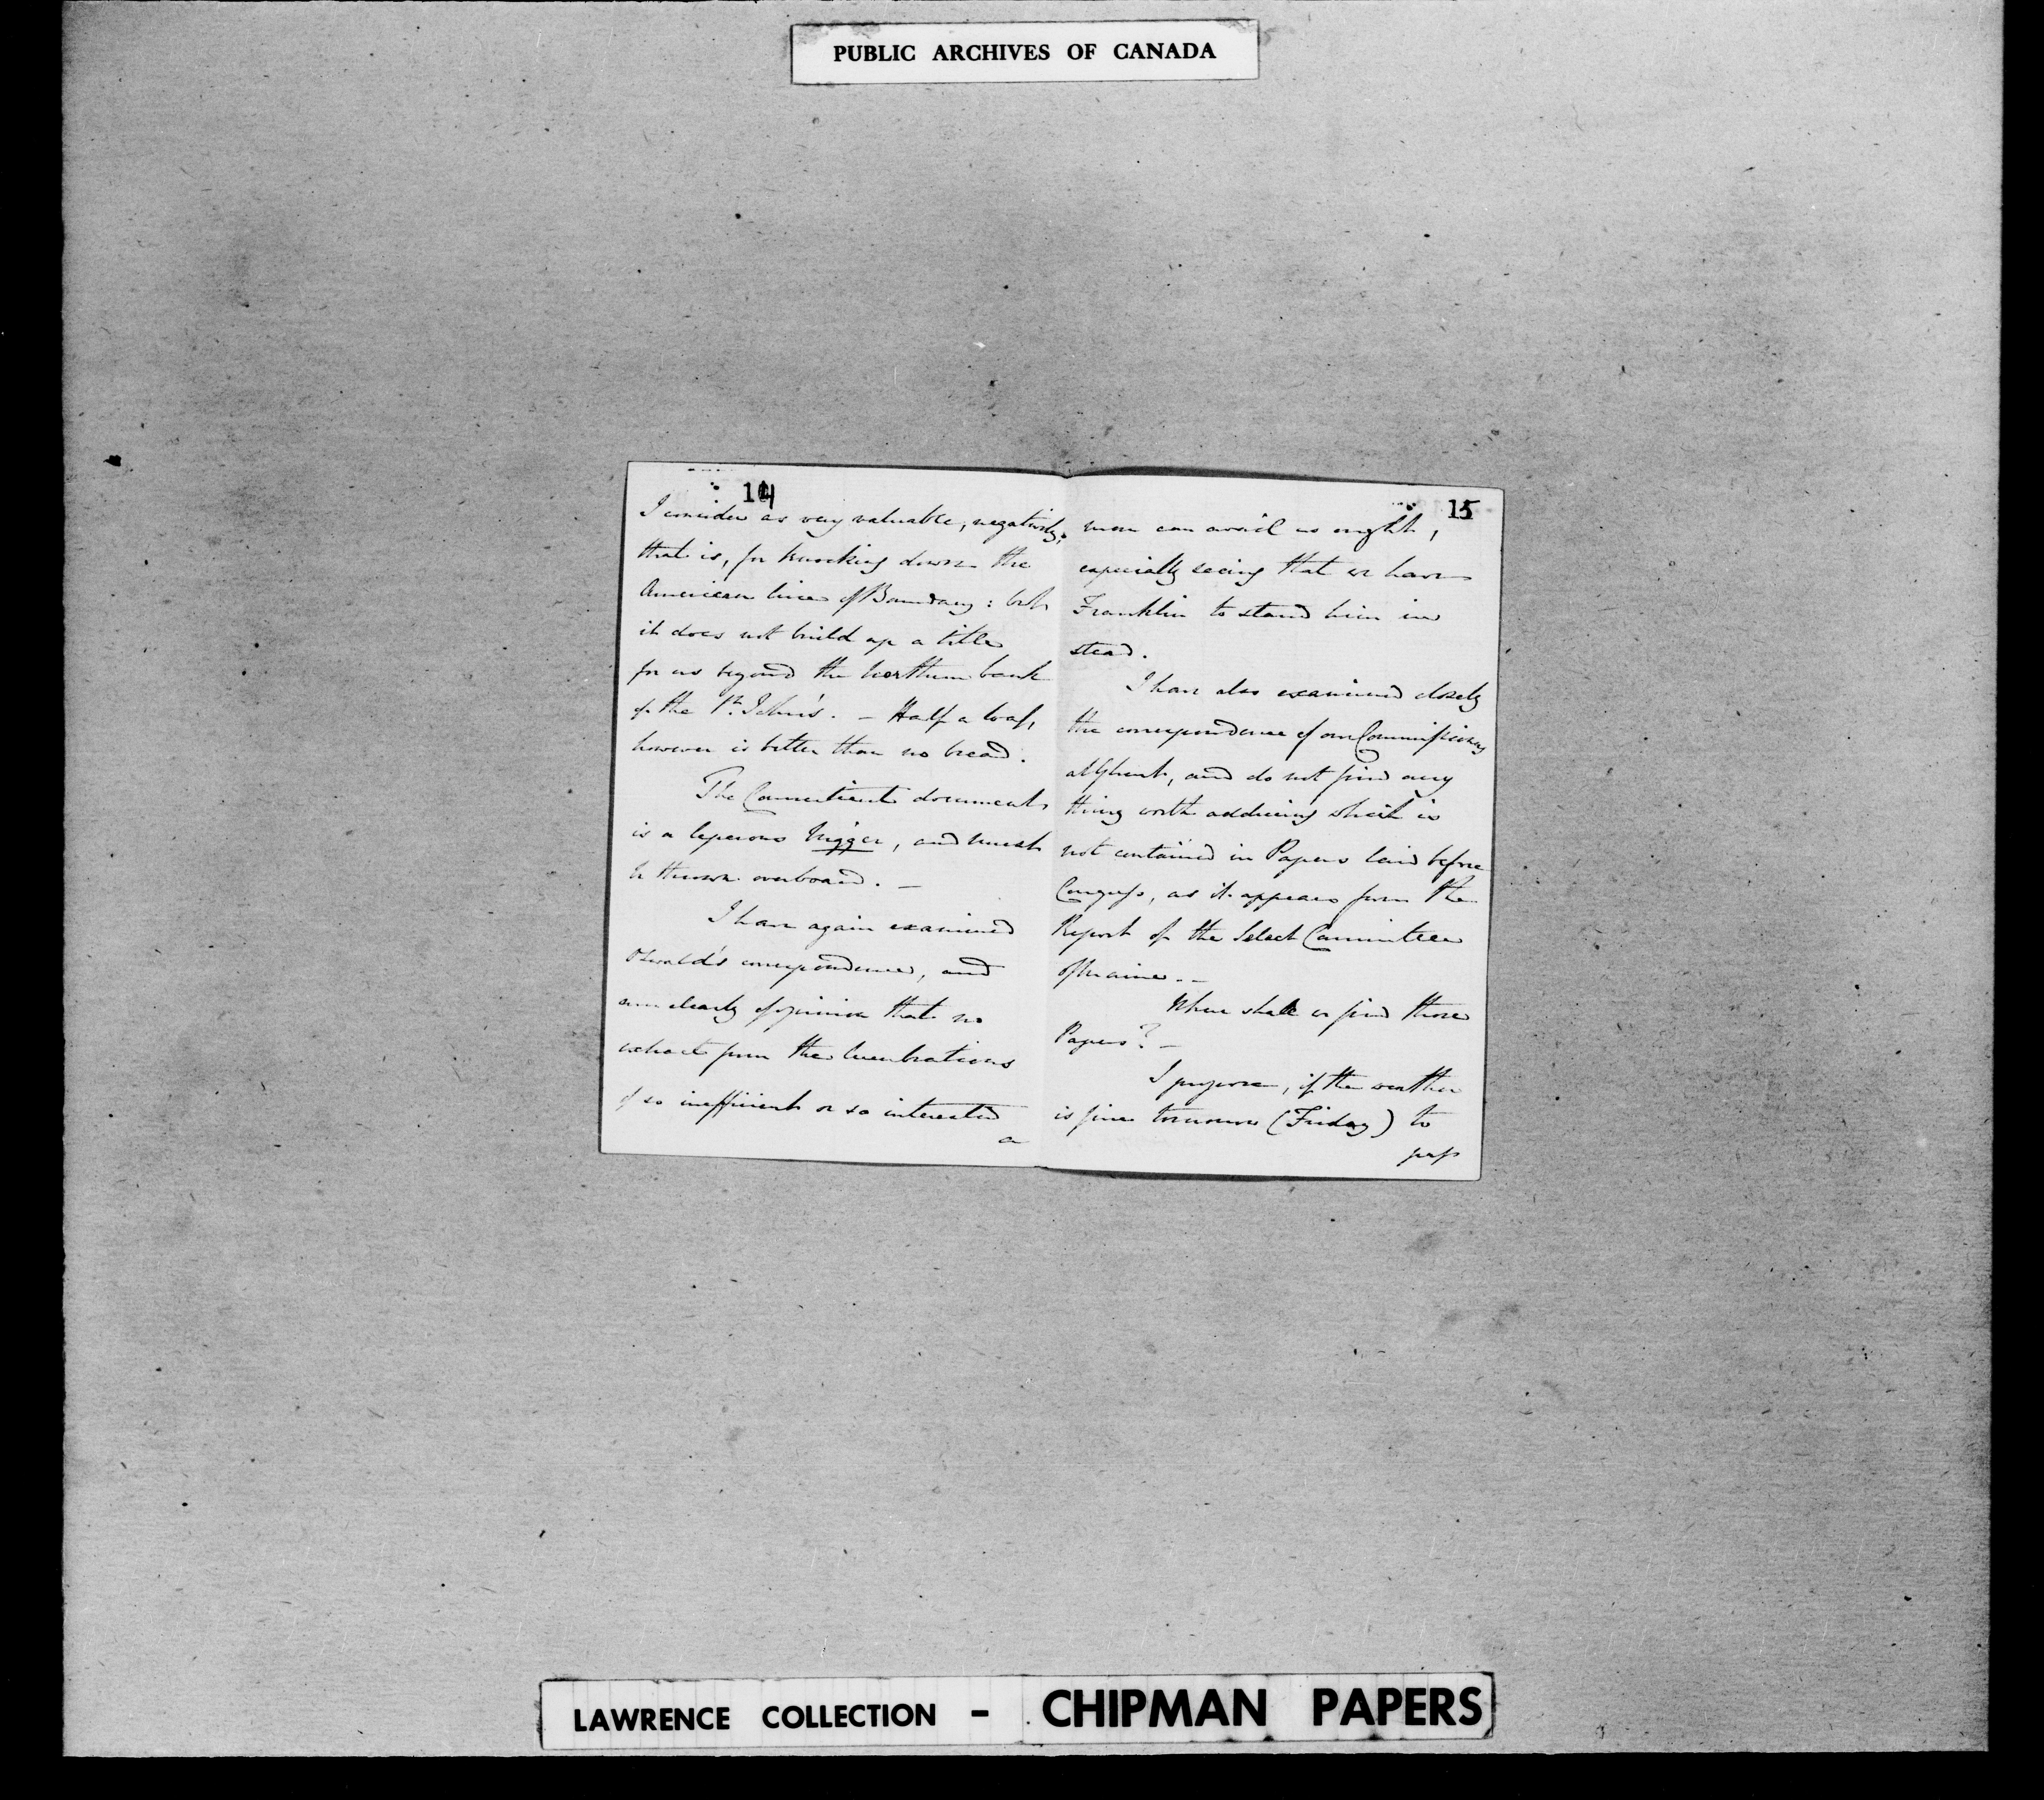 PUBLIC ARCHIVES OF CANADA
14
I consider as very valuable, negatively,
that is, for knocking down the
American line of Boundary: but
it does not build up a title
for us beyond the Northern bank
of the St. John's. – Half a loaf,
however is better than no bread.
The Connecticut document
is a leperous nigger, and must
be thrown overboard. –
I have again examined
Oswald's correspondence, and
am clearly of opinion that no
extract from the lucubrations
of so inefficient or so interested
a
15
man can avail us ought,
especially seeing that we have
Franklin to stand him in
stead.
I have also examined closely
the correspondence of our Commissioners
at Ghent, and do not find any
thing worth adducing which is
not contained in Papers laid before
Congress, as it appears from the
Report of the Select Committee
of Maine. –
Where shall we find those
Papers? –
I propose, if the weather
is fine tomorrow (Friday) to
pass
LAWRENCE COLLECTION - CHIPMAN PAPERS